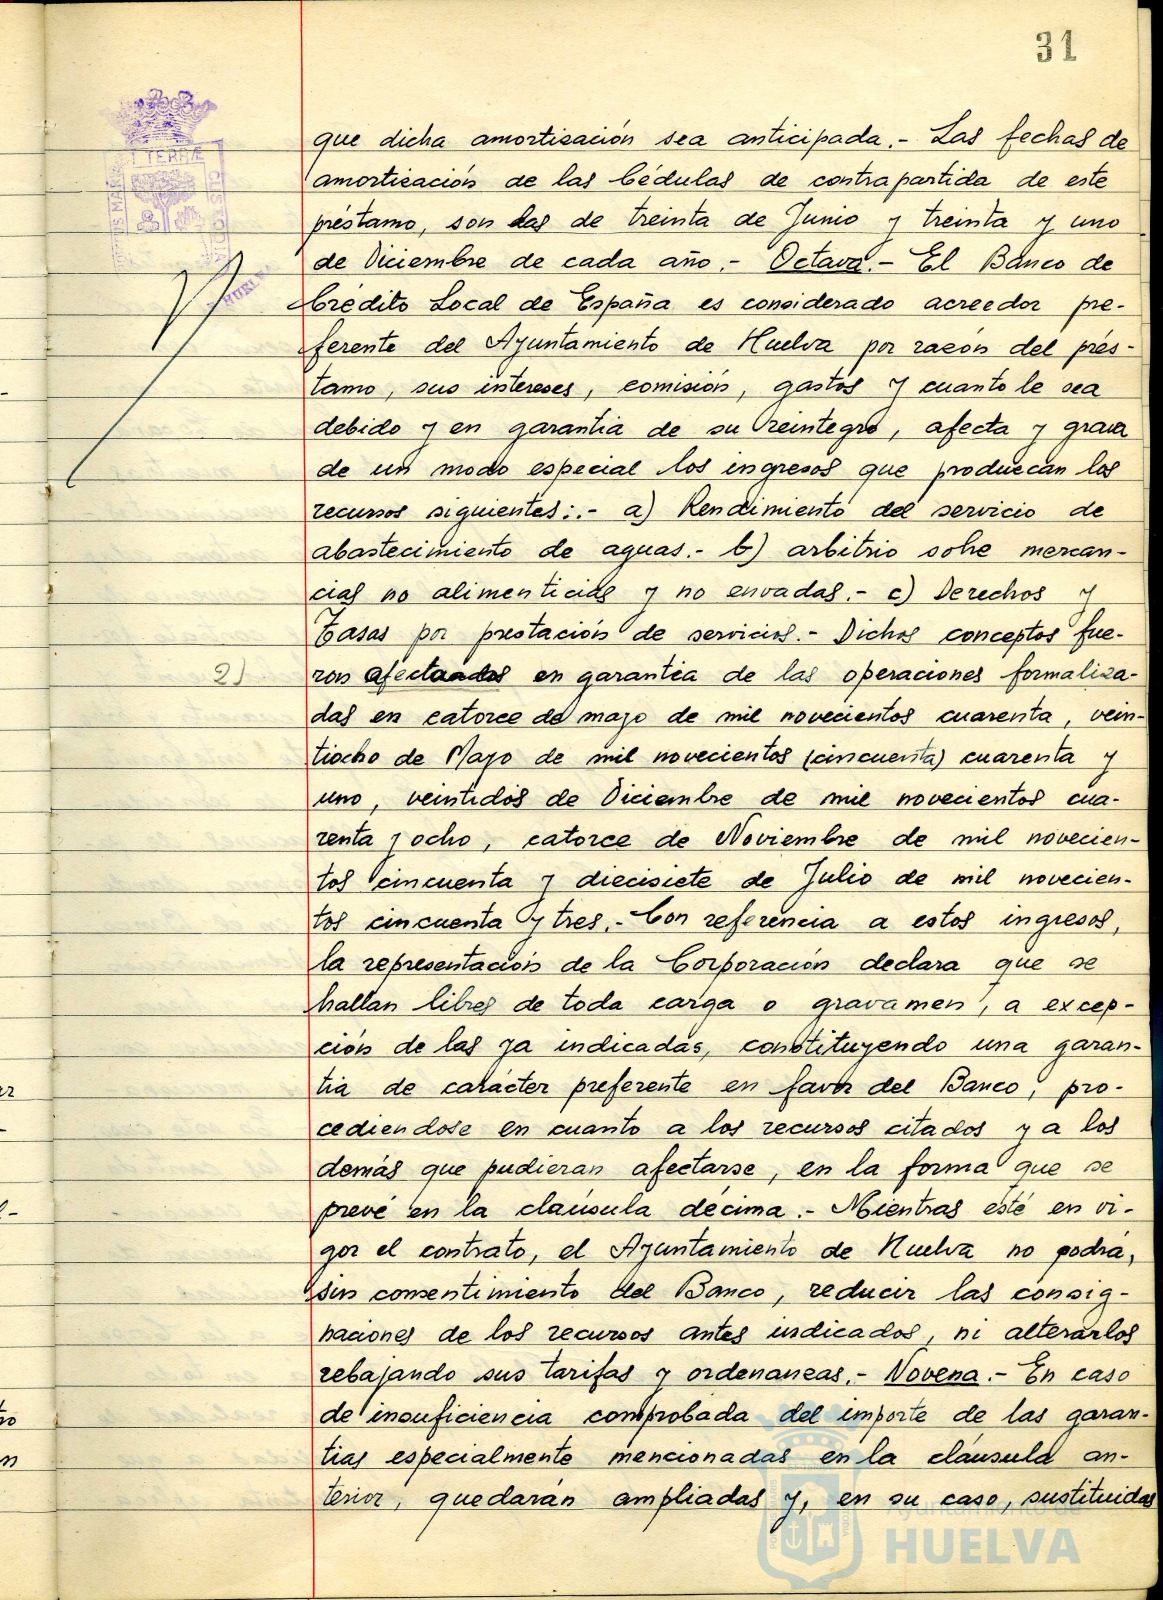 31
que dicha amortización sea anticipada.- Las fechas de
amortización de las Cédulas de contrapartida de este
préstamo, son las de treinta de Junio y treinta y uno
de Diciembre de cada año.- Octava.- El Banco de
Crédito Local de España es considerado acreedor pre-
ferente del Ayuntamiento de Huelva por razón del prés-
tamo, sus intereses, comisión, gastos y cuanto le sea
debido y en garantia de su reintegro, afecta y grava
de un modo especial los ingresos que produzcan los
recursos siguientes:.- a) Rendimiento del servicio de
abastecimiento de aguas.- b) arbitrio sobre mercan-
cias no alimenticias y no envadas.- c) Derechos y
Tasas por prestación de servicios.- Dichos conceptos fue-
2)
ron afectados en garantia de las operaciones formaliza-
das en catorce de mayo de mil novecientos cuarenta, vein-
tiocho de Mayo de mil novecientos (cincuenta) cuarenta y
uno, veintidós de Diciembre de mil novecientos cua-
renta y ocho, catorce de Noviembre de mil novecien-
tos cincuenta y diecisiete de Julio de mil novecien-
tos cincuenta y tres.- Con referencia a estos ingresos,
la representación de la Corporación declara que se
hallan libres de toda carga o gravamen, a excep-
ción de las ya indicadas, constituyendo una garan-
tia de carácter preferente en favor del Banco, pro-
cediendose en cuanto a los recursos citados y a los
demás que pudieran afectarse, en la forma que se
prevé en la claúsula décima.- Mientras esté en vi-
gor el contrato, el Ayuntamiento de Huelva no podrá,
sin consentimiento del Banco, reducir las consig-
naciones de los recursos antes indicados, ni alterarlos
rebajando sus tarifas y ordenanzas.- Novena.- En caso
de insuficiencia comprobada del importe de las garan-
tias especialmente mencionadas en la cláusula an-
terior, quedarán ampliadas y, en su caso, sustituidas
Ayuntamiento de
HUELVA